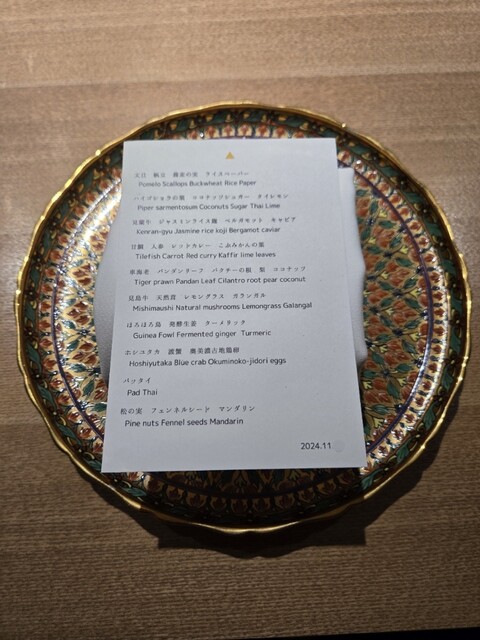 文旦　帆立　蕎麦の実　ライスペーパー
Pomelo Scallops Buckwheat Rice Paper
ハイゴショウの葉　ココナッツシュガー　タイレモン
Piper sarmentosum Coconuts Sugar Thai Lime
見蘭牛　ジャスミンライス麹　ベルガモット　キャビア
Kenran-gyu Jasmine rice koji Bergamot caviar
甘鯛　人参　レッドカレー　こぶみかんの葉
Tilefish Carrot Red curry Kaffir lime leaves
車海老　パンダンリーフ　パクチーの根　梨　ココナッツ
Tiger prawn Pandan Leaf Cilantro root pear coconut
見島牛　天然茸　レモングラス　ガランガル
Mishimaushi Natural mushrooms Lemongrass Galangal
ほろほろ鳥　発酵生姜　ターメリック
Guinea Fowl Fermented ginger Turmeric
ホシユタカ　渡蟹　奥美濃古地鶏卵
Hoshiyutaka Blue crab Okuminoko-jidori eggs
パッタイ
Pad Thai
松の実　フェンネルシード　マンダリン
Pine nuts Fennel seeds Mandarin
2024.11